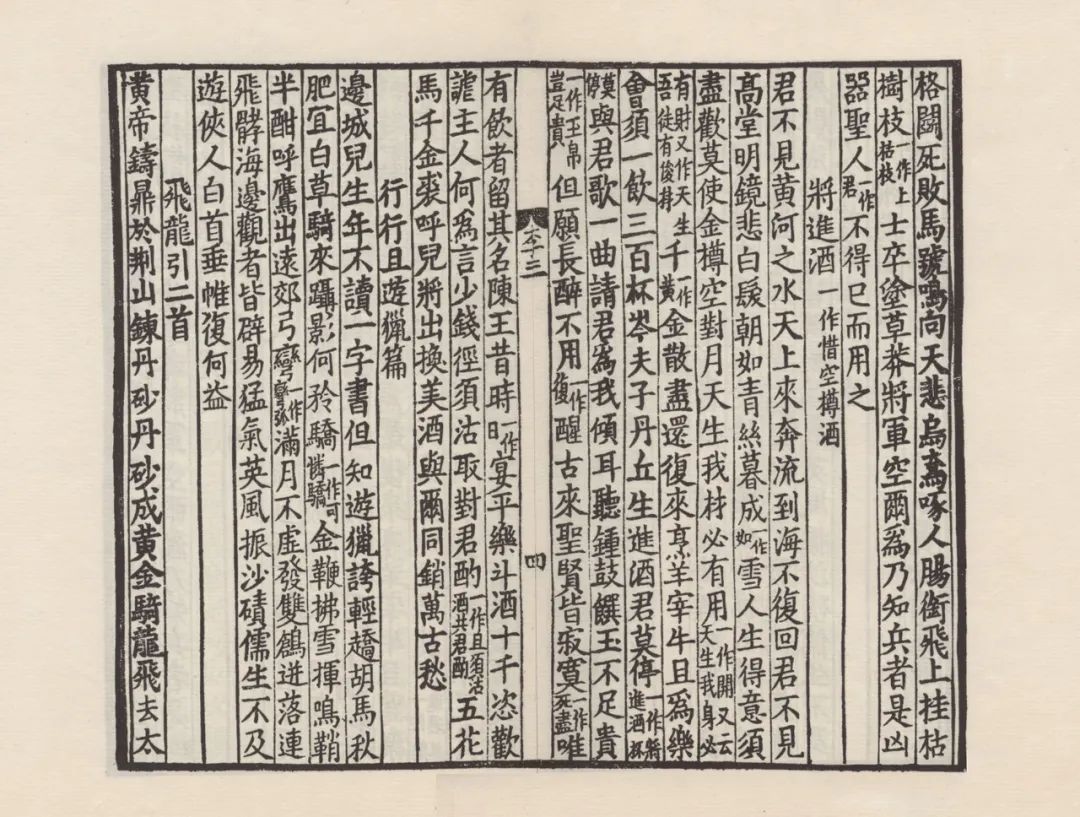 格鬬死敗馬號鳴向天悲烏鳶啄人腸銜飛上挂枯
樹枝一作上枯枝士卒塗草莽將軍空爾爲乃知兵者是凶
噐聖人一作君不得已而用之
將進酒一作惜空樽酒
君不見黃河之水天上來奔流到海不復回君不見
高堂明鏡悲白髮朝如青絲暮成一作如雪人生得意須
盡歡莫使金樽空對月天生我材必有用一作開又云天生我身必
有財又作天生吾徒有俊材千一作黃金散盡還復來烹羊宰牛且爲樂
會須一飲三百杯岑夫子丹丘生進酒君莫停一作將進酒杯
莫停與君歌一曲請君爲我傾耳聽鍾鼓饌玉不足貴
一作玉帛豈足貴但願長醉不用一作復醒古來聖賢皆寂寞一作死盡唯
李三
四
有飲者留其名陳王昔時一作日宴平樂斗酒十千恣歡
謔主人何爲言少錢徑須沽取對君酌一作且須沽酒共君酌五花
馬千金裘呼兒將出換美酒與爾同銷萬古愁
行行且遊獵篇
邊城兒生年不讀一字書但知遊獵誇輕趫胡馬秋
肥宜白草騎來躡影何矜驕一作可憐驕金鞭拂雪揮鳴鞘
半酣呼鷹出遠郊弓彎一作彎弧滿月不虛發雙鶬迸落連
飛髇海邊觀者皆辟易猛氣英風振沙磧儒生不及
遊俠人白首垂帷復何益
飛龍引二首
黃帝鑄鼎於荆山鍊丹砂丹砂成黃金騎龍飛去太